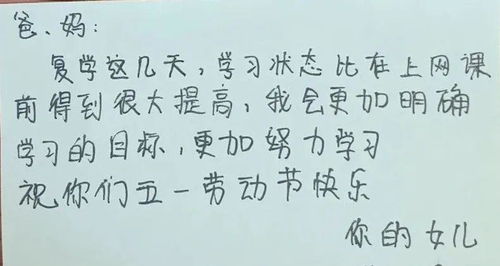 爸、妈:
复学这几天,学习状态比在上网课
前得到很大提高,我会更加明确
学习的目标,更加努力学习
祝你们五一劳动节快乐
你的女儿